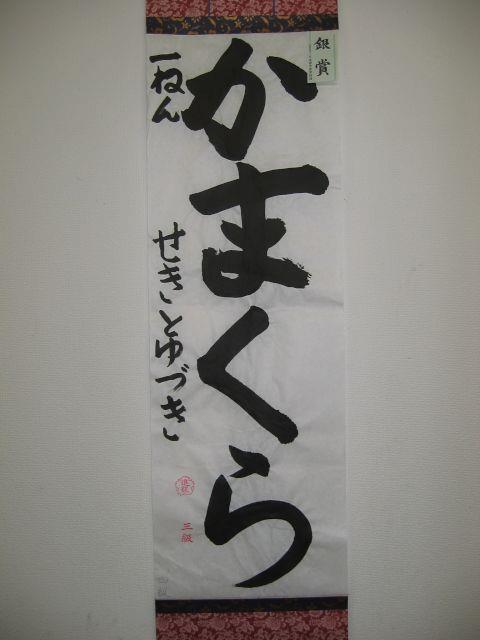 銀賞
かまくら
一ねん
せきとゆづき
三級